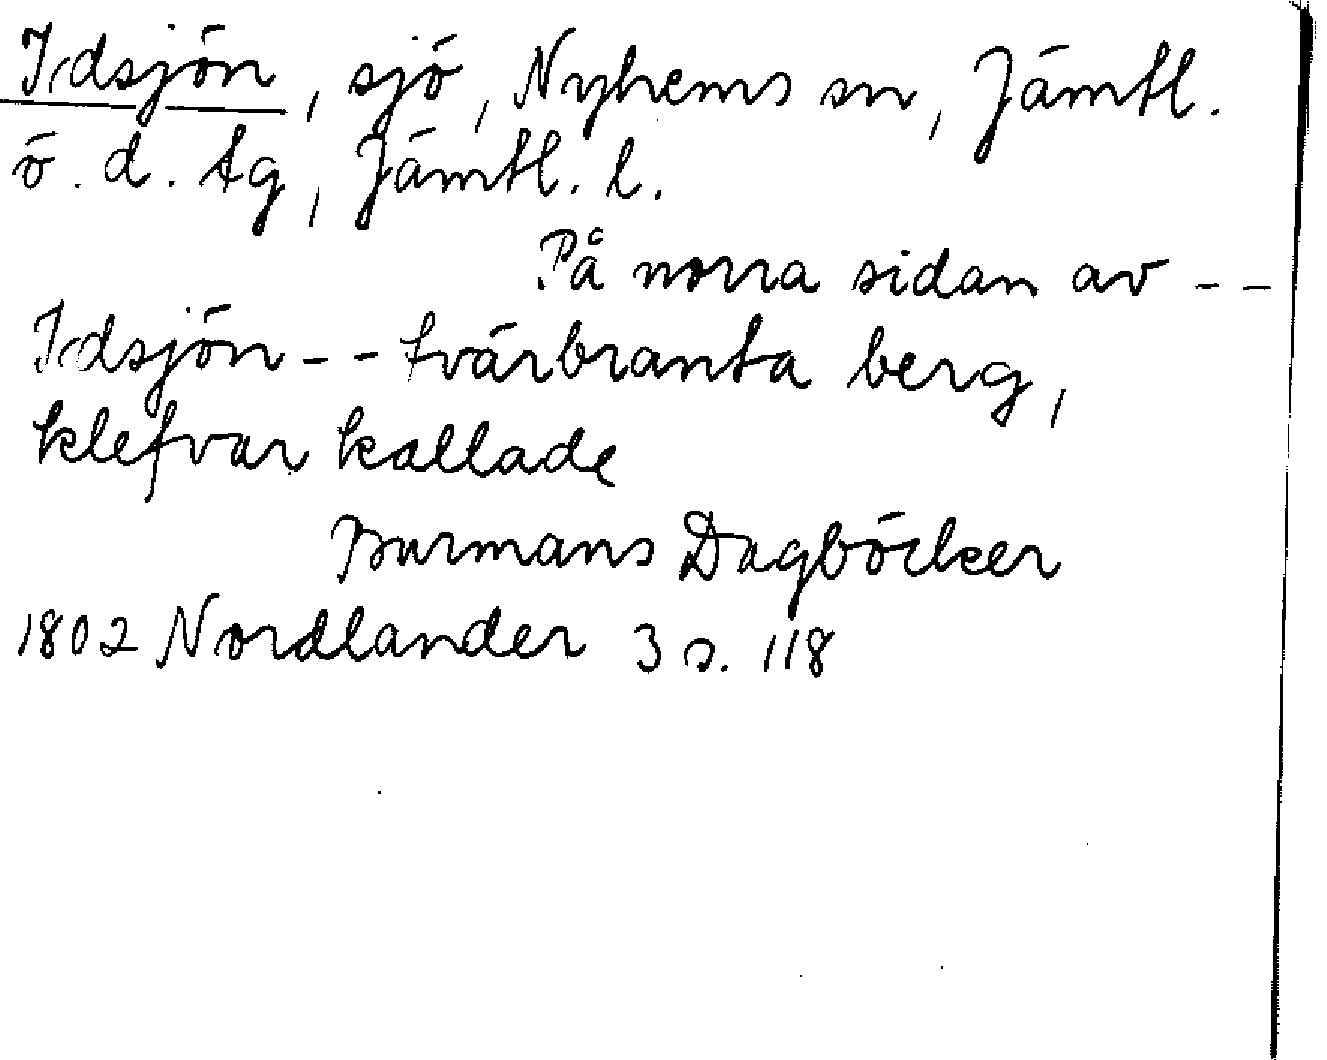 Idsjön, sjö, Nyhems sn, Jämtl.
ö. d. tg, Jämtl. l.
På norra sidan av --
Idsjön -- tvärbranta berg,
klefvar kallade
Burmans Dagböcker
1802 Nordlander 3 s. 118